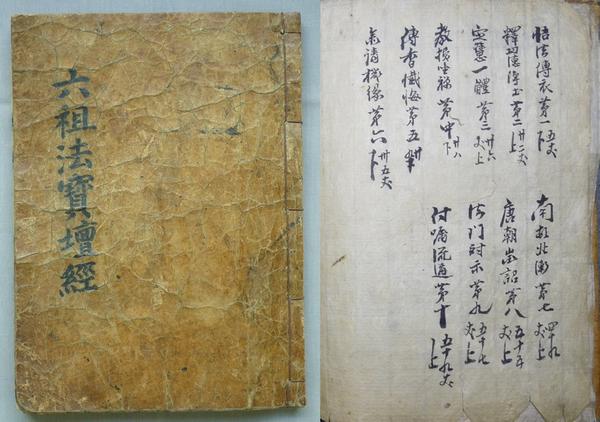 六祖法寶壇經
悟法傳衣第一 五丈 下
釋功德淨土第二 廿二丈
定慧一體第三 廿六丈上
教授坐禪第四 廿八下
傳香懺悔第五 卅
參請機緣第六 卅五丈 下
南頓北漸第七 四十九丈上
唐朝徵詔第八 五十五丈上
法門對示第九 五十七丈上
付囑流通第十 五十九丈上